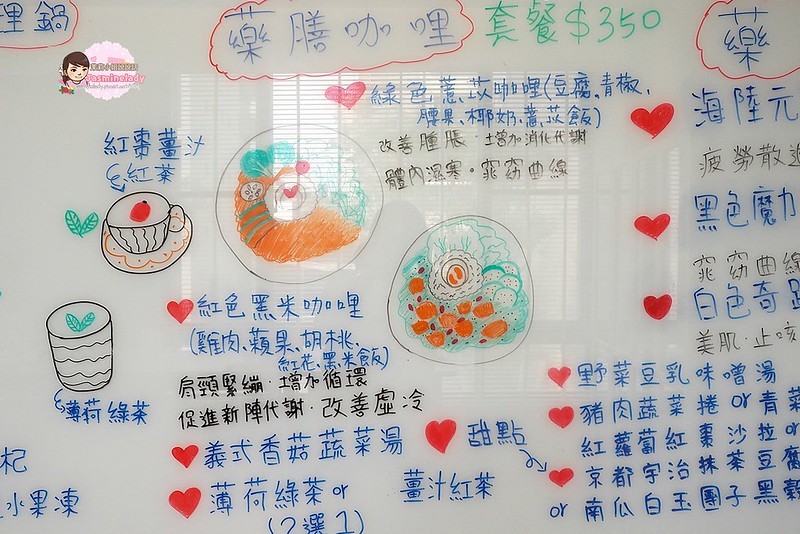 理鍋
藥膳咖哩 套餐$350
藥
Jasminelady
綠色薏苡咖哩(豆腐、青椒、
腰果、椰奶、薏苡飯)
改善腫脹·增加消化代謝
體內濕寒·窕窈曲線
紅棗薑汁
紅茶
海陸元
疲勞散
黑色魔力
窕窈曲線
白色奇
美肌·止咳
紅色黑米咖哩
(雞肉、蘋果、胡桃、
紅花、黑米飯)
肩頸緊繃·增加循環
促進新陣代謝·改善虛冷
薄荷綠茶
義式香菇蔬菜湯
薄荷綠茶 or
薑汁紅茶
(2選1)
甜點
野菜豆乳味噌湯
豬肉蔬菜捲 or 青菜
紅蘿蔔紅棗沙拉 or
京都宇治抹茶豆腐
or 南瓜白玉團子 黑穀
杞
水果凍